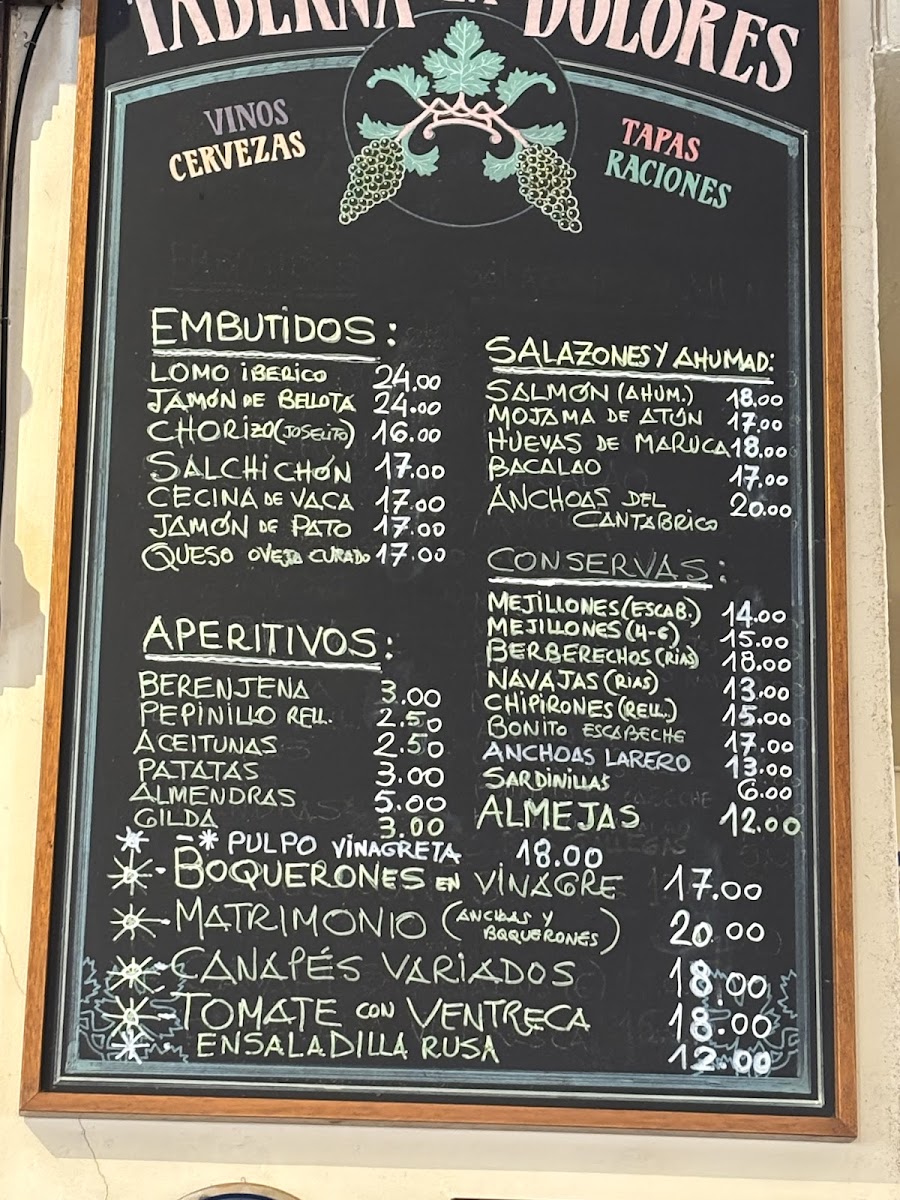 TABERNA LA DOLORES
VINOS
CERVEZAS
TAPAS
RACIONES
EMBUTIDOS:
LOMO IBERICO 24.00
JAMÓN DE BELLOTA 24.00
CHORIZO (JOSELITO) 16.00
SALCHICHÓN 17.00
CECINA DE VACA 17.00
JAMÓN DE PATO 17.00
QUESO OVEJA CURADO 17.00
APERITIVOS:
BERENJENA 3.00
PEPINILLO RELL. 2.50
ACEITUNAS 2.50
PATATAS 3.00
ALMENDRAS 5.00
GILDA 3.00
SALAZONES Y AHUMAD:
SALMÓN (AHUM.) 18.00
MOJAMA DE ATÚN 17.00
HUEVAS DE MARUCA 18.00
BACALAO 17.00
ANCHOAS DEL 20.00
CANTABRICO
CONSERVAS:
MEJILLONES (ESCAB.) 14.00
MEJILLONES (4-6) 15.00
BERBERECHOS (RIAS) 18.00
NAVAJAS (RIAS) 13.00
CHIPIRONES (RELL.) 15.00
BONITO ESCABECHE 17.00
ANCHOAS LARERO 13.00
SARDINILLAS 6.00
ALMEJAS 12.00
* - * PULPO VINAGRETA 18.00
* - BOQUERONES EN VINAGRE 17.00
* - MATRIMONIO (ANCHOAS Y BOQUERONES) 20.00
* - CANAPÉS VARIADOS 18.00
* - TOMATE CON VENTRECA 18.00
* - ENSALADILLA RUSA 12.00